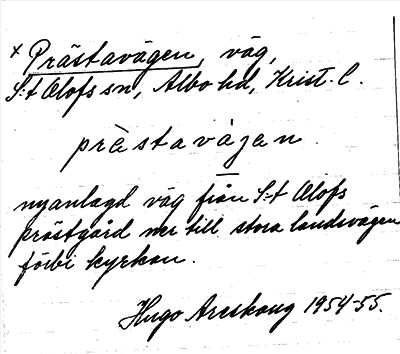 × Prästavägen, väg,
S:t Olofs sn, Albo hd, Krist. l.
prästavägen
nyanlagd väg från S:t Olofs
prästgård ner till stora landsvägen
förbi kyrkan.
Hugo Areskoug 1954-55.